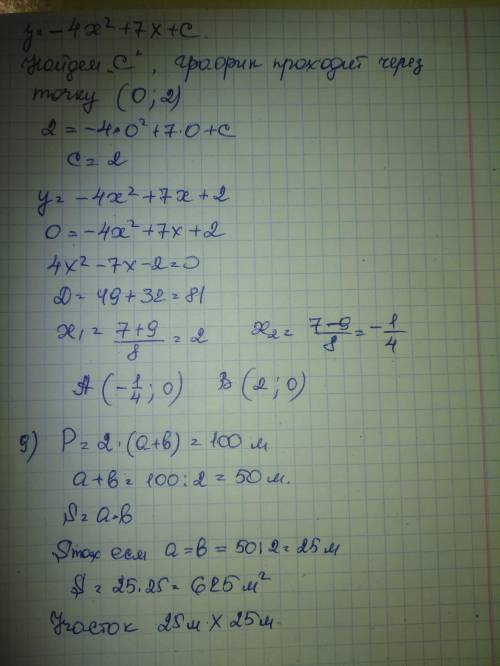 y = -4x² + 7x + c.
Найдем „c", график проходит через
точку (0; 2)
2 = -4·0² + 7·0 + c
c = 2
y = -4x² + 7x + 2
0 = -4x² + 7x + 2
4x² - 7x - 2 = 0
D = 49 + 32 = 81
x₁ = (7+9)/8 = 2    x₂ = (7-9)/8 = -1/4
A (-1/4; 0)    B (2; 0)
9) P = 2·(a+b) = 100 м
a+b = 100 : 2 = 50 м.
S = a·b
Smax если a = b = 50:2 = 25 м
S = 25·25 = 625 м²
Участок 25м × 25м.